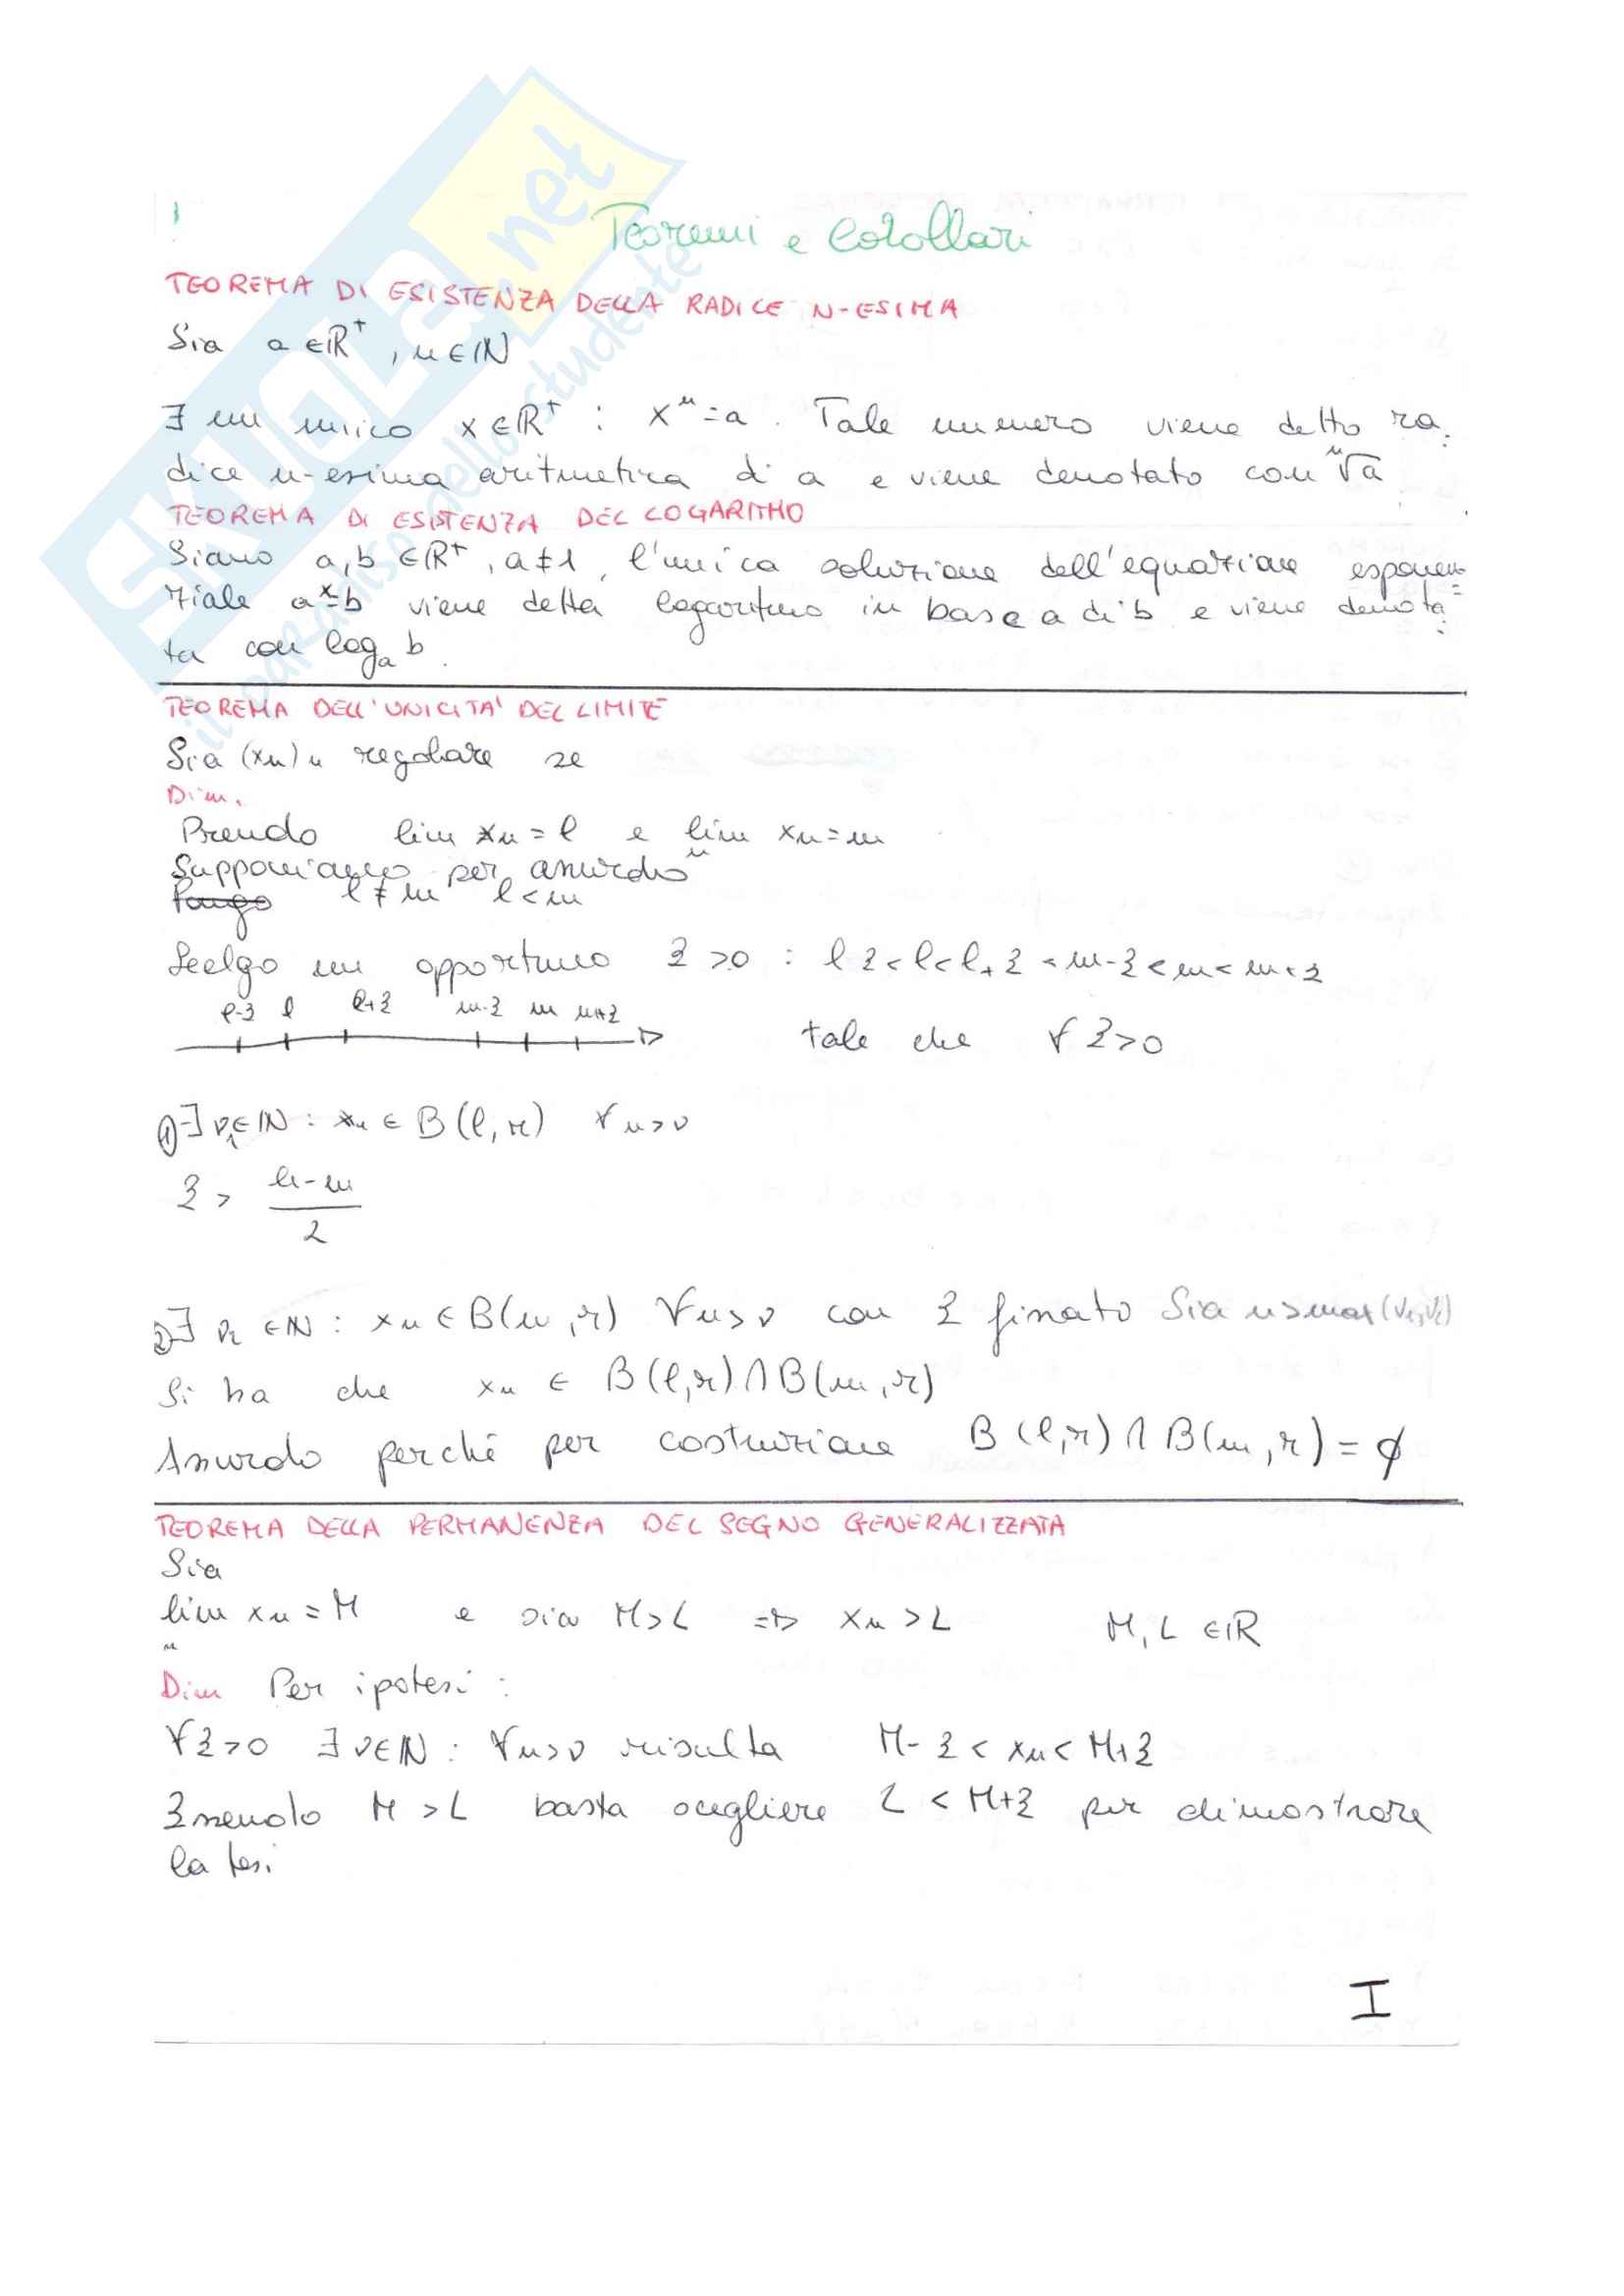 SKUOLA.net
il paradiso dello studente
1
Teoremi e Corollari
TEOREMA DI ESISTENZA DELLA RADICE N-ESIMA
Sia a ∈ ℝ⁺ , n ∈ ℕ
∃ un unico x ∈ ℝ⁺ : xⁿ = a . Tale numero viene detto ra-
dice n-esima aritmetica di a e viene denotato con ⁿ√a
TEOREMA DI ESISTENZA DEL LOGARITMO
Siano a, b ∈ ℝ⁺ , a ≠ 1 , l'unica soluzione dell'equazione esponen=
ziale aˣ = b viene detta logaritmo in base a di b e viene denota=
ta con logₐ b .
TEOREMA DELL'UNICITA' DEL LIMITE
Sia (xn)n regolare se
Dim.
Prendo lim xn = l e lim xn = m
n
Supponiamo per assurdo
Pongo l ≠ m l < m
Scelgo un opportuno ε > 0 : l ε < l < l + ε < m - ε < m < m + ε
l-ε l l+ε m-ε m m+ε
tale che ∀ ε > 0
1) ∃ ν₁ ∈ ℕ : xn ∈ B(l, r) ∀ n > ν
2) ∃ ν₂ ∈ ℕ : xn ∈ B(m, r) ∀ n > ν con ε fissato Sia n > max(ν₁, ν₂)
Si ha che xn ∈ B(l, r) ∩ B(m, r)
Assurdo perché per costruzione B(l, r) ∩ B(m, r) = ∅
TEOREMA DELLA PERMANENZA DEL SEGNO GENERALIZZATA
Sia
lim xn = M e sia M > L => xn > L M, L ∈ ℝ
n
Dim Per ipotesi :
∀ ε > 0 ∃ ν ∈ ℕ : ∀ n > ν risulta M - ε < xn < M + ε
Essendo M > L basta scegliere L < M + ε per dimostrare
la tesi
I